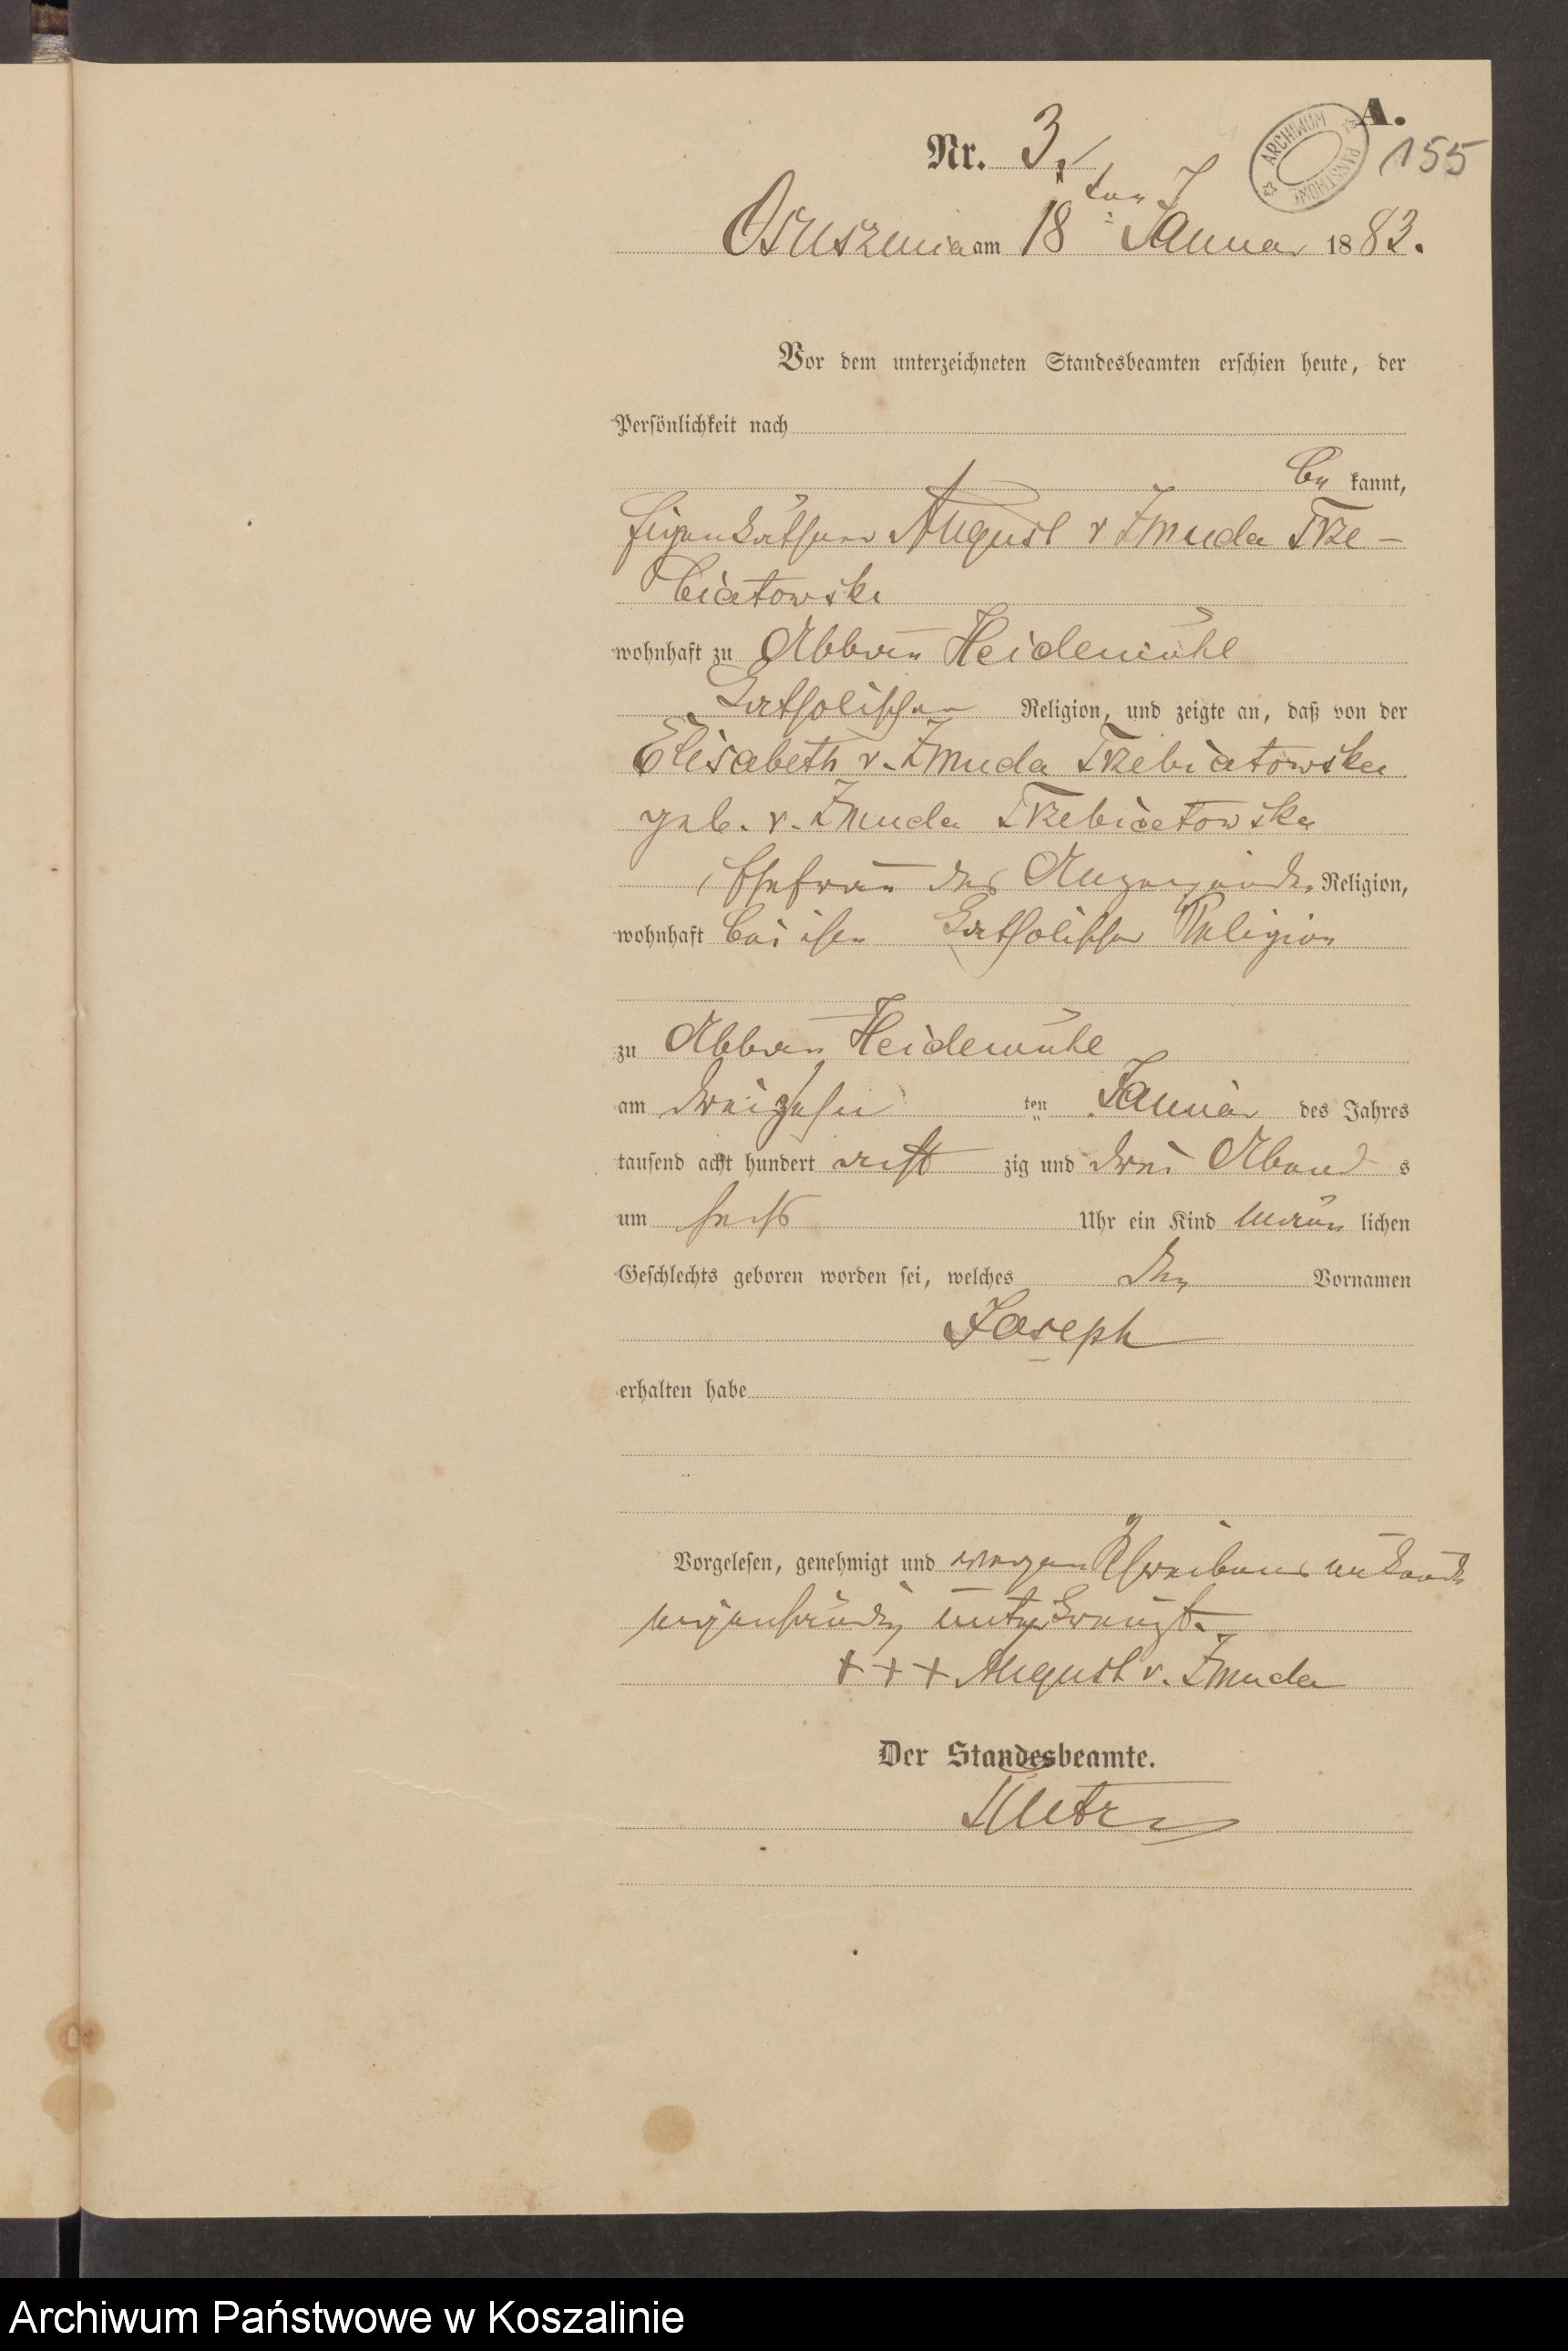 A.
Nr. 3.
ARCHIWUM PAŃSTWOWE
155
Osusznica am 18ten Januar 1883.
Vor dem unterzeichneten Standesbeamten erschien heute, der
Persönlichkeit nach
be kannt,
Eigenkäthner August v Zmuda Trze-
biatowski
wohnhaft zu Abbau Heidemühl
katholischer Religion, und zeigte an, daß von der
Elisabeth v. Zmuda Trzebiatowska
geb. v. Zmuda Trzebiatowska
Ehefrau des Anzeigenden Religion,
wohnhaft bei ihm katholischer Religion
zu Abbau Heidemühl
am dreizehn ten Januar des Jahres
tausend acht hundert acht zig und drei Abend s
um sechs Uhr ein Kind männ lichen
Geschlechts geboren worden sei, welches den Vornamen
Joseph
erhalten habe
Vorgelesen, genehmigt und wegen Schreibens unkunde
eigenhändig unterkreuzt.
+++ August v. Zmuda
Der Standesbeamte.
Archiwum Państwowe w Koszalinie